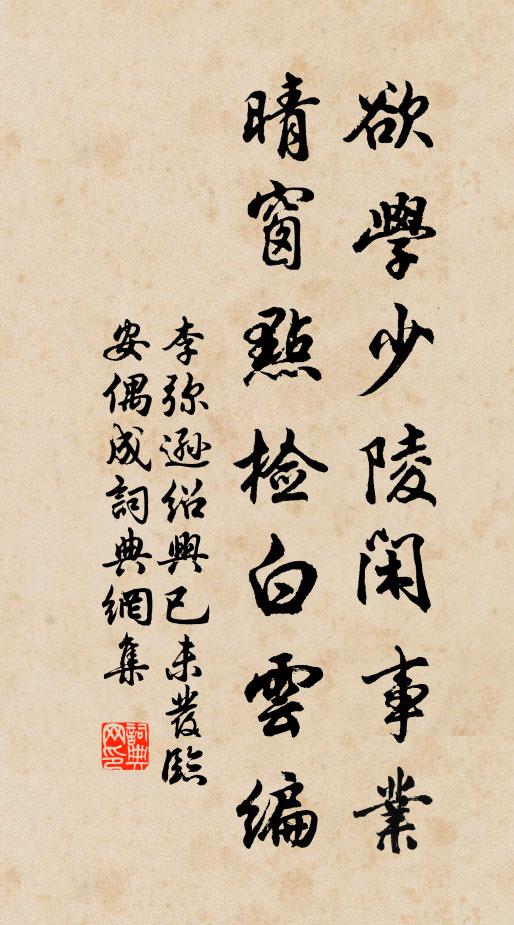 欲學少陵閑事業
晴窗點檢白雲編
李弥遜绍興已未發臨
安偶成詞典網集
詞典网印